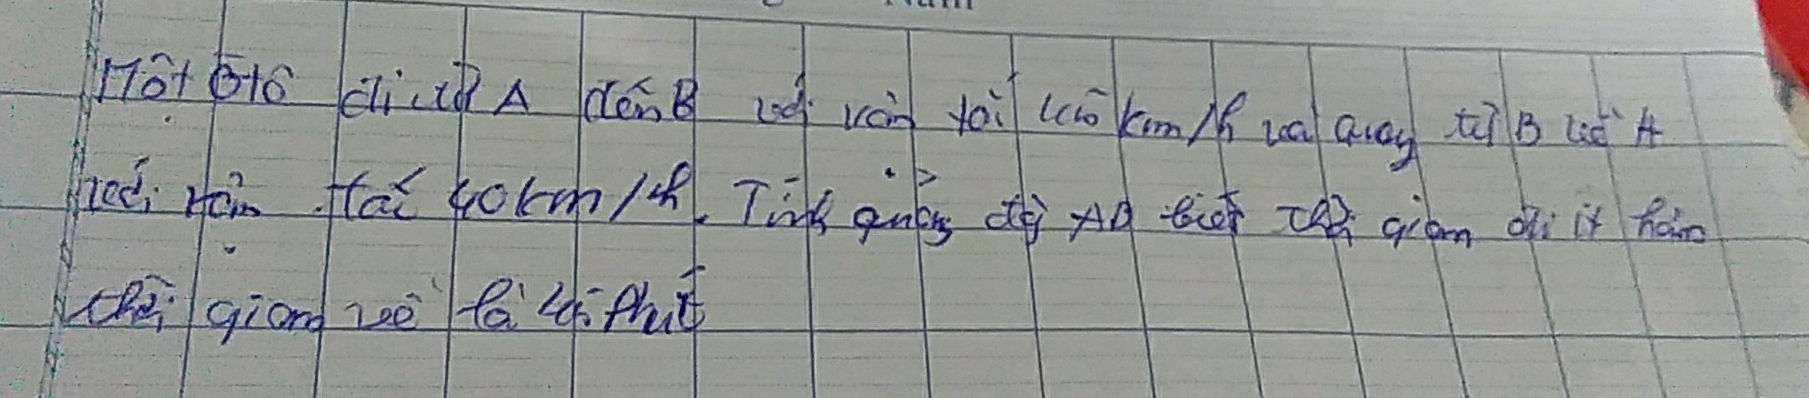 Năm
Một ôtô đi từ A đến B với vận tốc km/h và quay từ B về A
với vận tốc 40km/h. Tính quãng đg AB biết thời gian đi ít hơn
thời gian về là phút